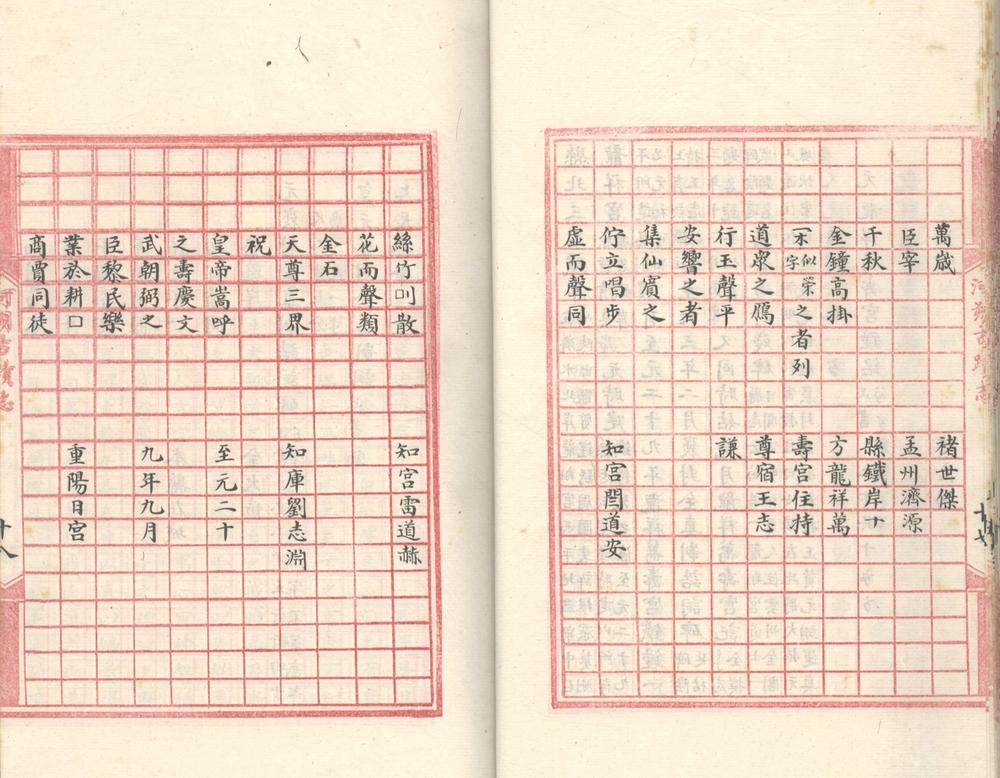 萬歲 褚世傑
臣宰 孟州濟源
千秋 縣鐵岸十
金鐘高掛 方龍祥萬
(一字似榮)之者列 壽宮住持
道眾之鴈 尊宿王志
行玉聲平 謙
安響之者
集仙賓之
佇立唱步 知宮閆道安
虛而聲同
絲竹叫散 知宮雷道赫
花而聲類
金石
天尊三界 知庫劉志淵
祝
皇帝嵩呼 至元二十
之壽慶文
武朝弼之 九年九月
臣黎民樂
業於耕口 重陽日宮
商賈同徒
十八